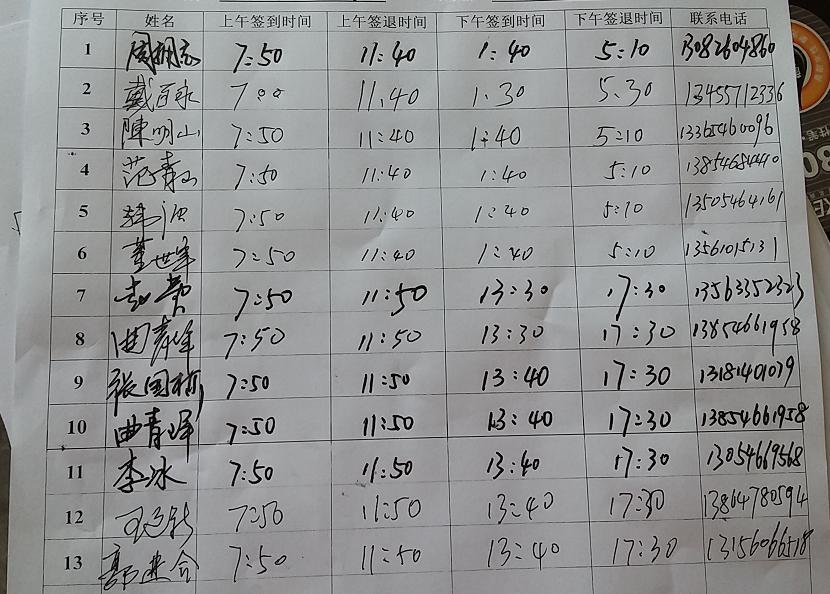 序号 姓名 上午签到时间 上午签退时间 下午签到时间 下午签退时间 联系电话
1 7:50 11:40 1:40 5:10 13082604860
2 戴百永 7:00 11:40 1:30 5:30 13455712336
3 陳明山 7:50 11:40 1:40 5:10 13365460096
4 范青 7:50 11:40 1:40 5:10 13854684410
5 7:50 11:40 1:40 5:10 13505464161
6 董世军 7:50 11:40 1:40 5:10 13561015131
7 7:50 11:50 13:30 17:30 13563352323
8 曲青峰 7:50 11:50 13:30 17:30 13854661958
9 张国栋 7:50 11:50 13:40 17:30 13181401079
10 曲青峰 7:50 11:50 13:40 17:30 13854661958
11 李冰 7:50 11:50 13:40 17:30 13054669568
12 7:50 11:50 13:40 17:30 13864780594
13 郭建会 7:50 11:50 13:40 17:30 13156066518